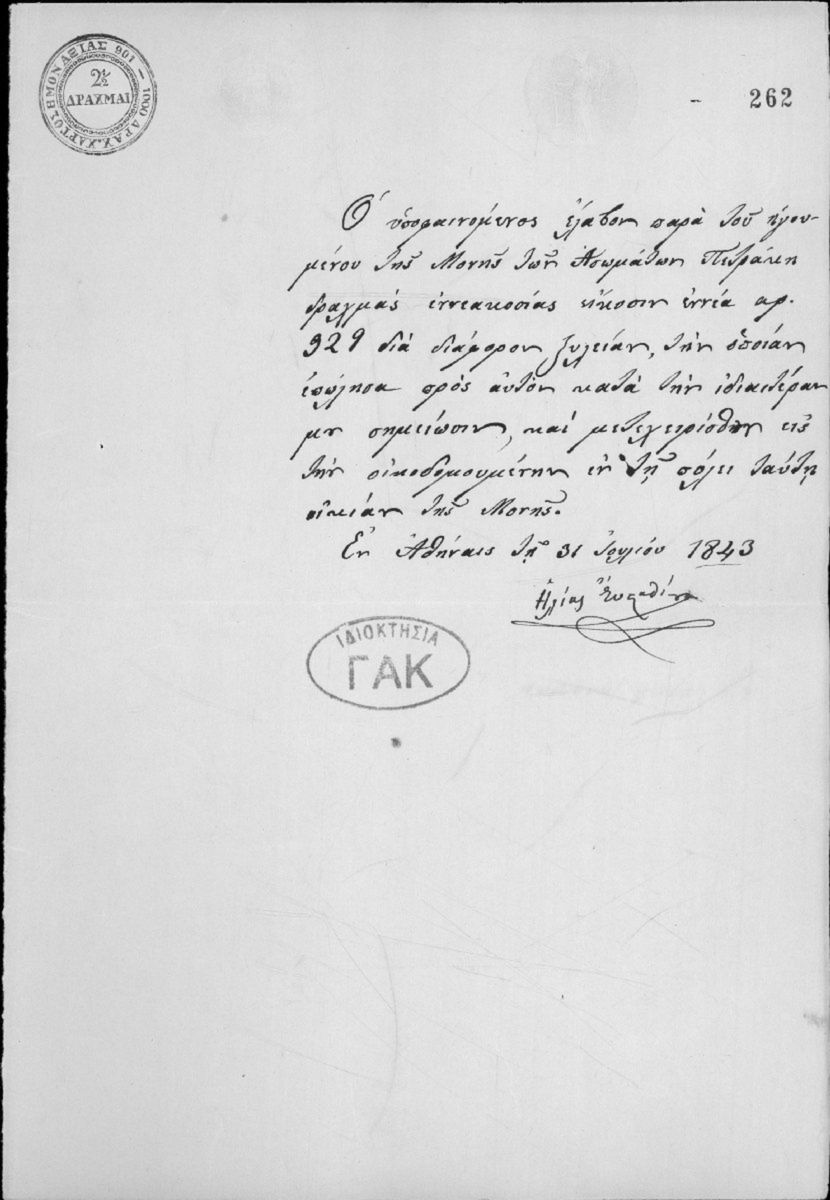 ΧΑΡΤΟΣΗΜΟΝ ΑΞΙΑΣ 901 — 1000 ΔΡΑΧ.
2½
ΔΡΑΧΜΑΙ
262
Ὁ ὑποφαινόμενος ἔλαβον παρὰ τοῦ ἡγου-
μένου τῆς Μονῆς τῶν Ἀσωμάτων Πετράκη
δραχμάς ἐννεακοσίας εἴκοσιν ἐννέα αρ.
929 διά διάφορον ξυλείαν, τὴν ὁποίαν
ἐπώλησα πρὸς αὐτὸν κατὰ τὴν ἰδιαιτέραν
μου σημείωσιν, καί μετεχειρίσθην εἰς
τὴν οἰκοδομουμένην ἐν τῇ πόλει ταύτῃ
οἰκίαν τῆς Μονῆς.
Ἐν Ἀθήναις τῇ 31 Ἰουλίου 1843
Ἠλίας
ΙΔΙΟΚΤΗΣΙΑ
ΓΑΚ